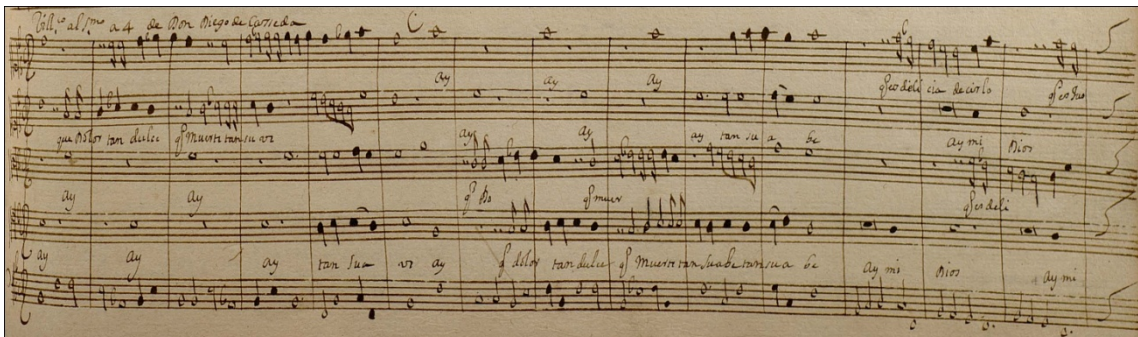 Vill.co al S.mo a 4 de Don Diego de Casseda
ay ay ay q es deli cia de cielo q es du
que dolor tan dulce q Muerte tan su ve
ay ay ay tan sua be ay mi Dios
ay ay q Do q muer q es deli
ay ay ay tan sua ve ay q dolor tan dulce q Muerte tan suabe tan sua be ay mi Dios ay mi